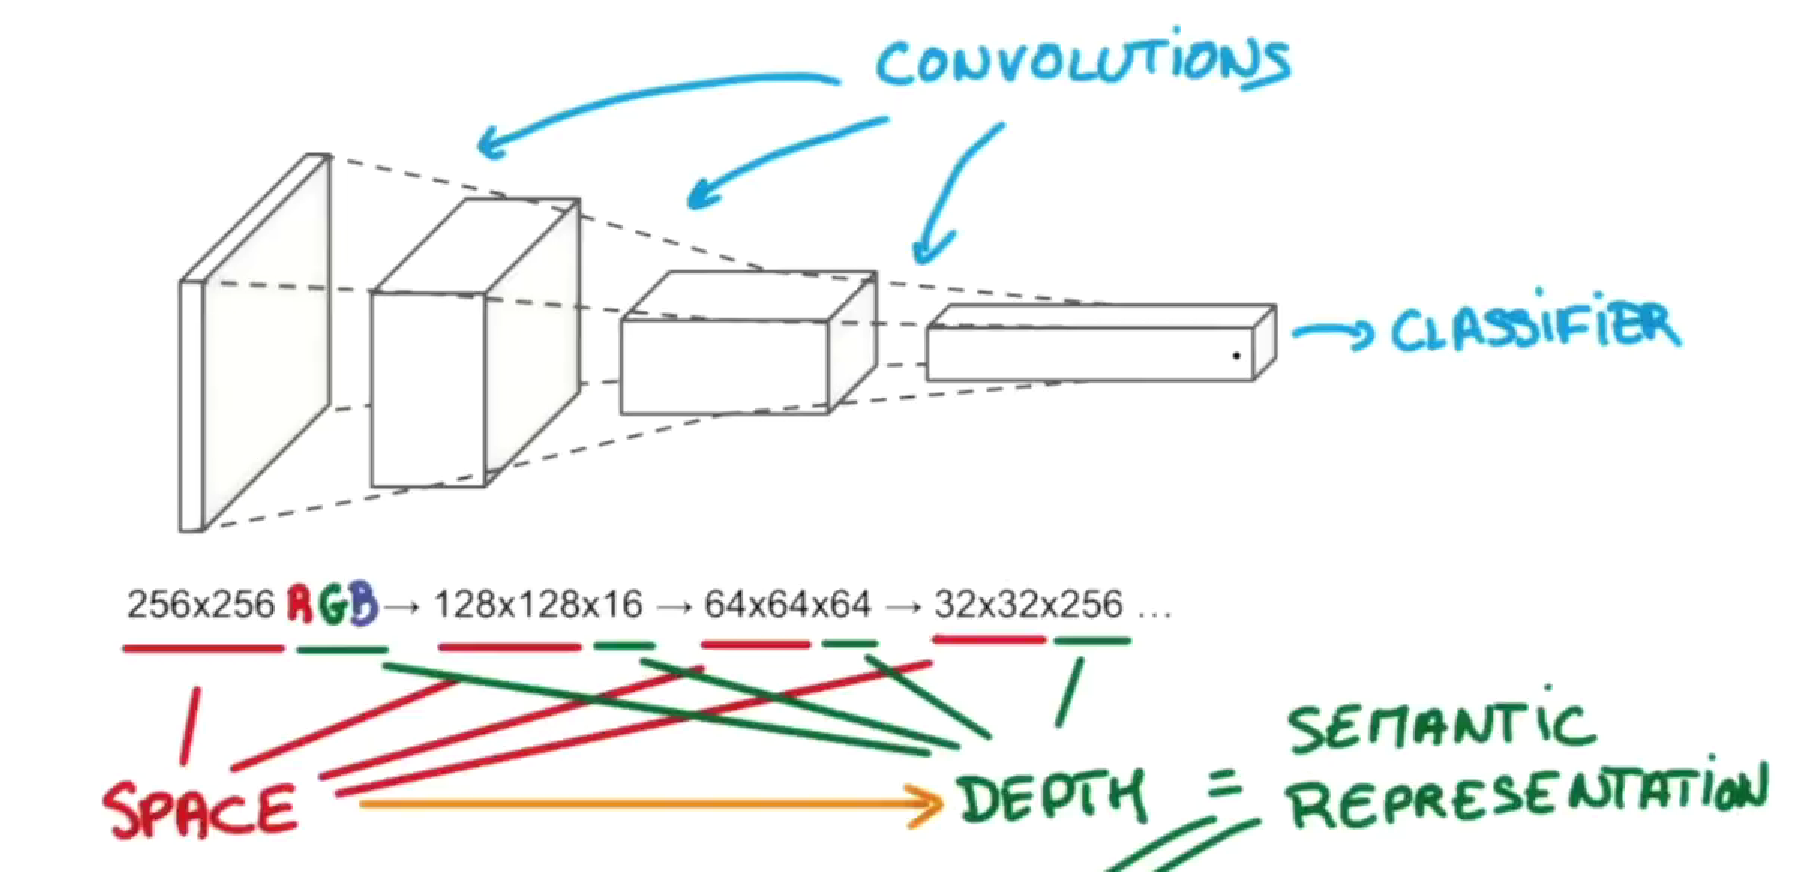 CONVOLUTIONS
CLASSIFIER
256x256 RGB → 128x128x16 → 64x64x64 → 32x32x256 ...
SEMANTIC
SPACE → DEPTH = REPRESENTATION